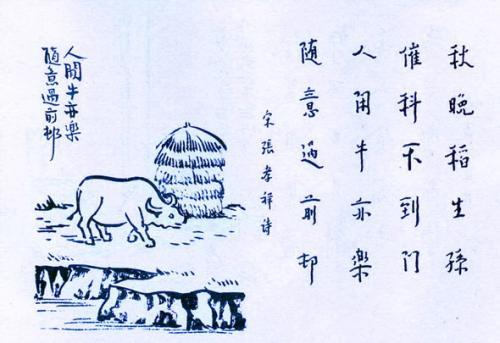 秋晚稻生孫
催科不到门
人闲牛亦樂
随意过前邨
宋張孝祥诗
人閒牛亦樂
隨意過前邨